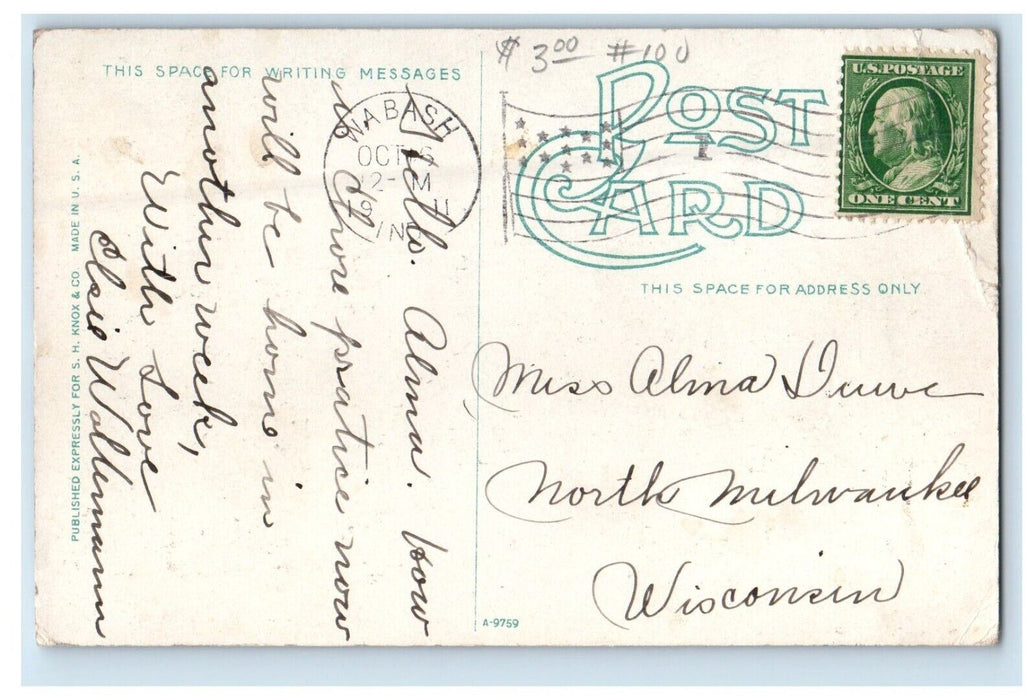 $ 3.00 #100
THIS SPACE FOR WRITING MESSAGES
POST
CARD
THIS SPACE FOR ADDRESS ONLY.
U.S. POSTAGE
ONE CENT
WABASH
OCT
12- M
1911
IND
Hello. Alma. how
is Chore pratice now
will be home in
another week,
With Love
Elsie
Miss Alma
North Milwaukee
Wisconsin
PUBLISHED EXPRESSLY FOR S. H. KNOX & CO. MADE IN U. S. A.
A-9759